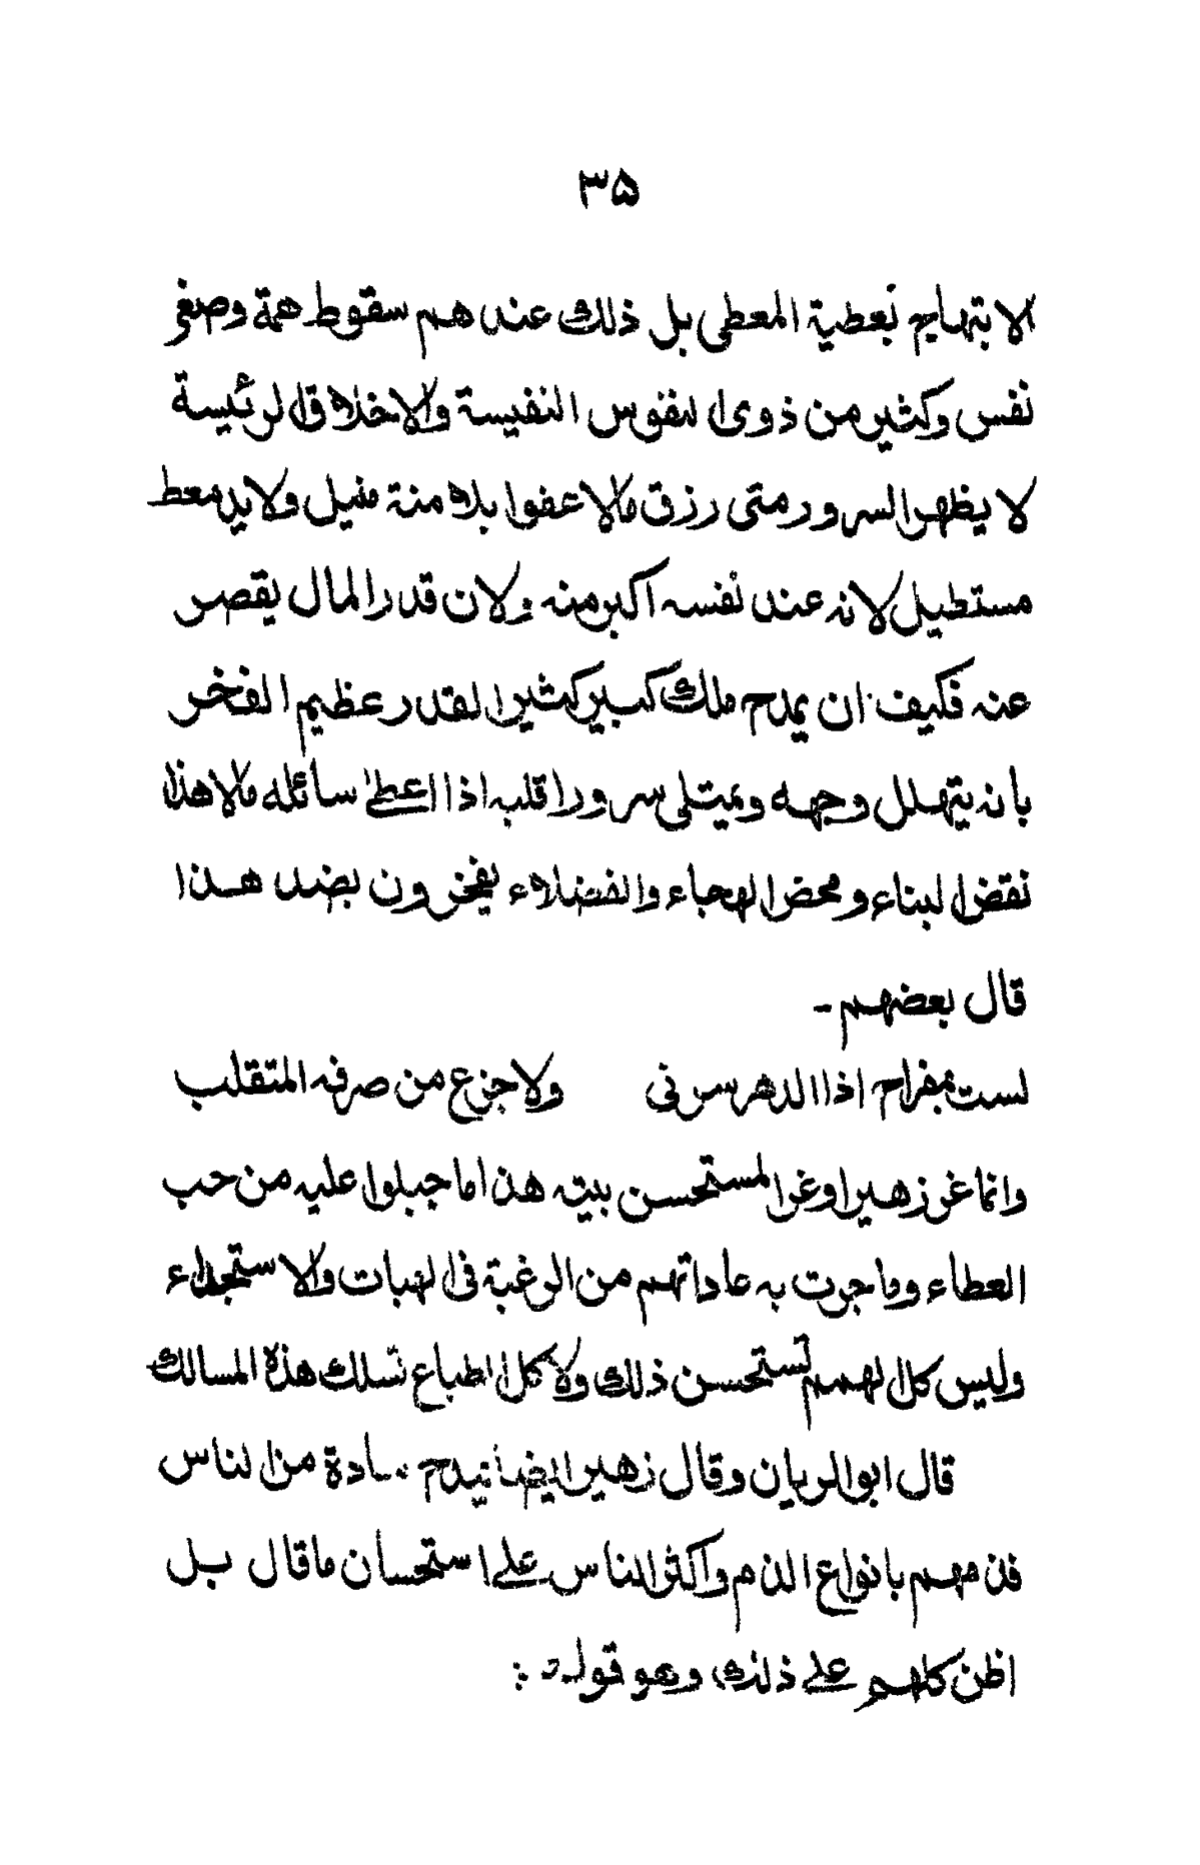 ٣۵
الابتهاج بعطية المعطى بل ذلك عندهم سقوط همة وصغر
نفس وكثير من ذوى النفوس النفيسة والاخلاق الرئيسة
لا يظهر السرور متى رزق مالا عفوا بلا منة منيل ولا يد معط
مستطيل لانه عند نفسه اكبر منه ولان قدر المال يقصر
عنه فكيف ان يمدح ملك كبير كثير القدر عظيم الفخر
بانه يتهلل وجهه ويمتلى سرورا قلبه اذا اعطى سائله مالا هذا
نقض البناء ومحض الهجاء والفضلاء يفخرون بضد هذا
قال بعضهم -
لست بمفراح اذا الدهر سرنى ولا جزع من صرفه المتقلب
وانما غر زهيرا وغر المستحسن بيته هذا ما جبلوا عليه من حب
العطاء وما جرت به عاداتهم من الرغبة فى الهبات والاستجداء
وليس كل الهمم تستحسن ذلك ولا كل الطباع تسلك هذه المسالك
قال ابو الريان وقال زهير ايضا يمدح سادة من الناس
فذمهم بانواع الذم واكثر الناس على استحسان ما قال بل
اظن كلهم على ذلك وهو قوله :